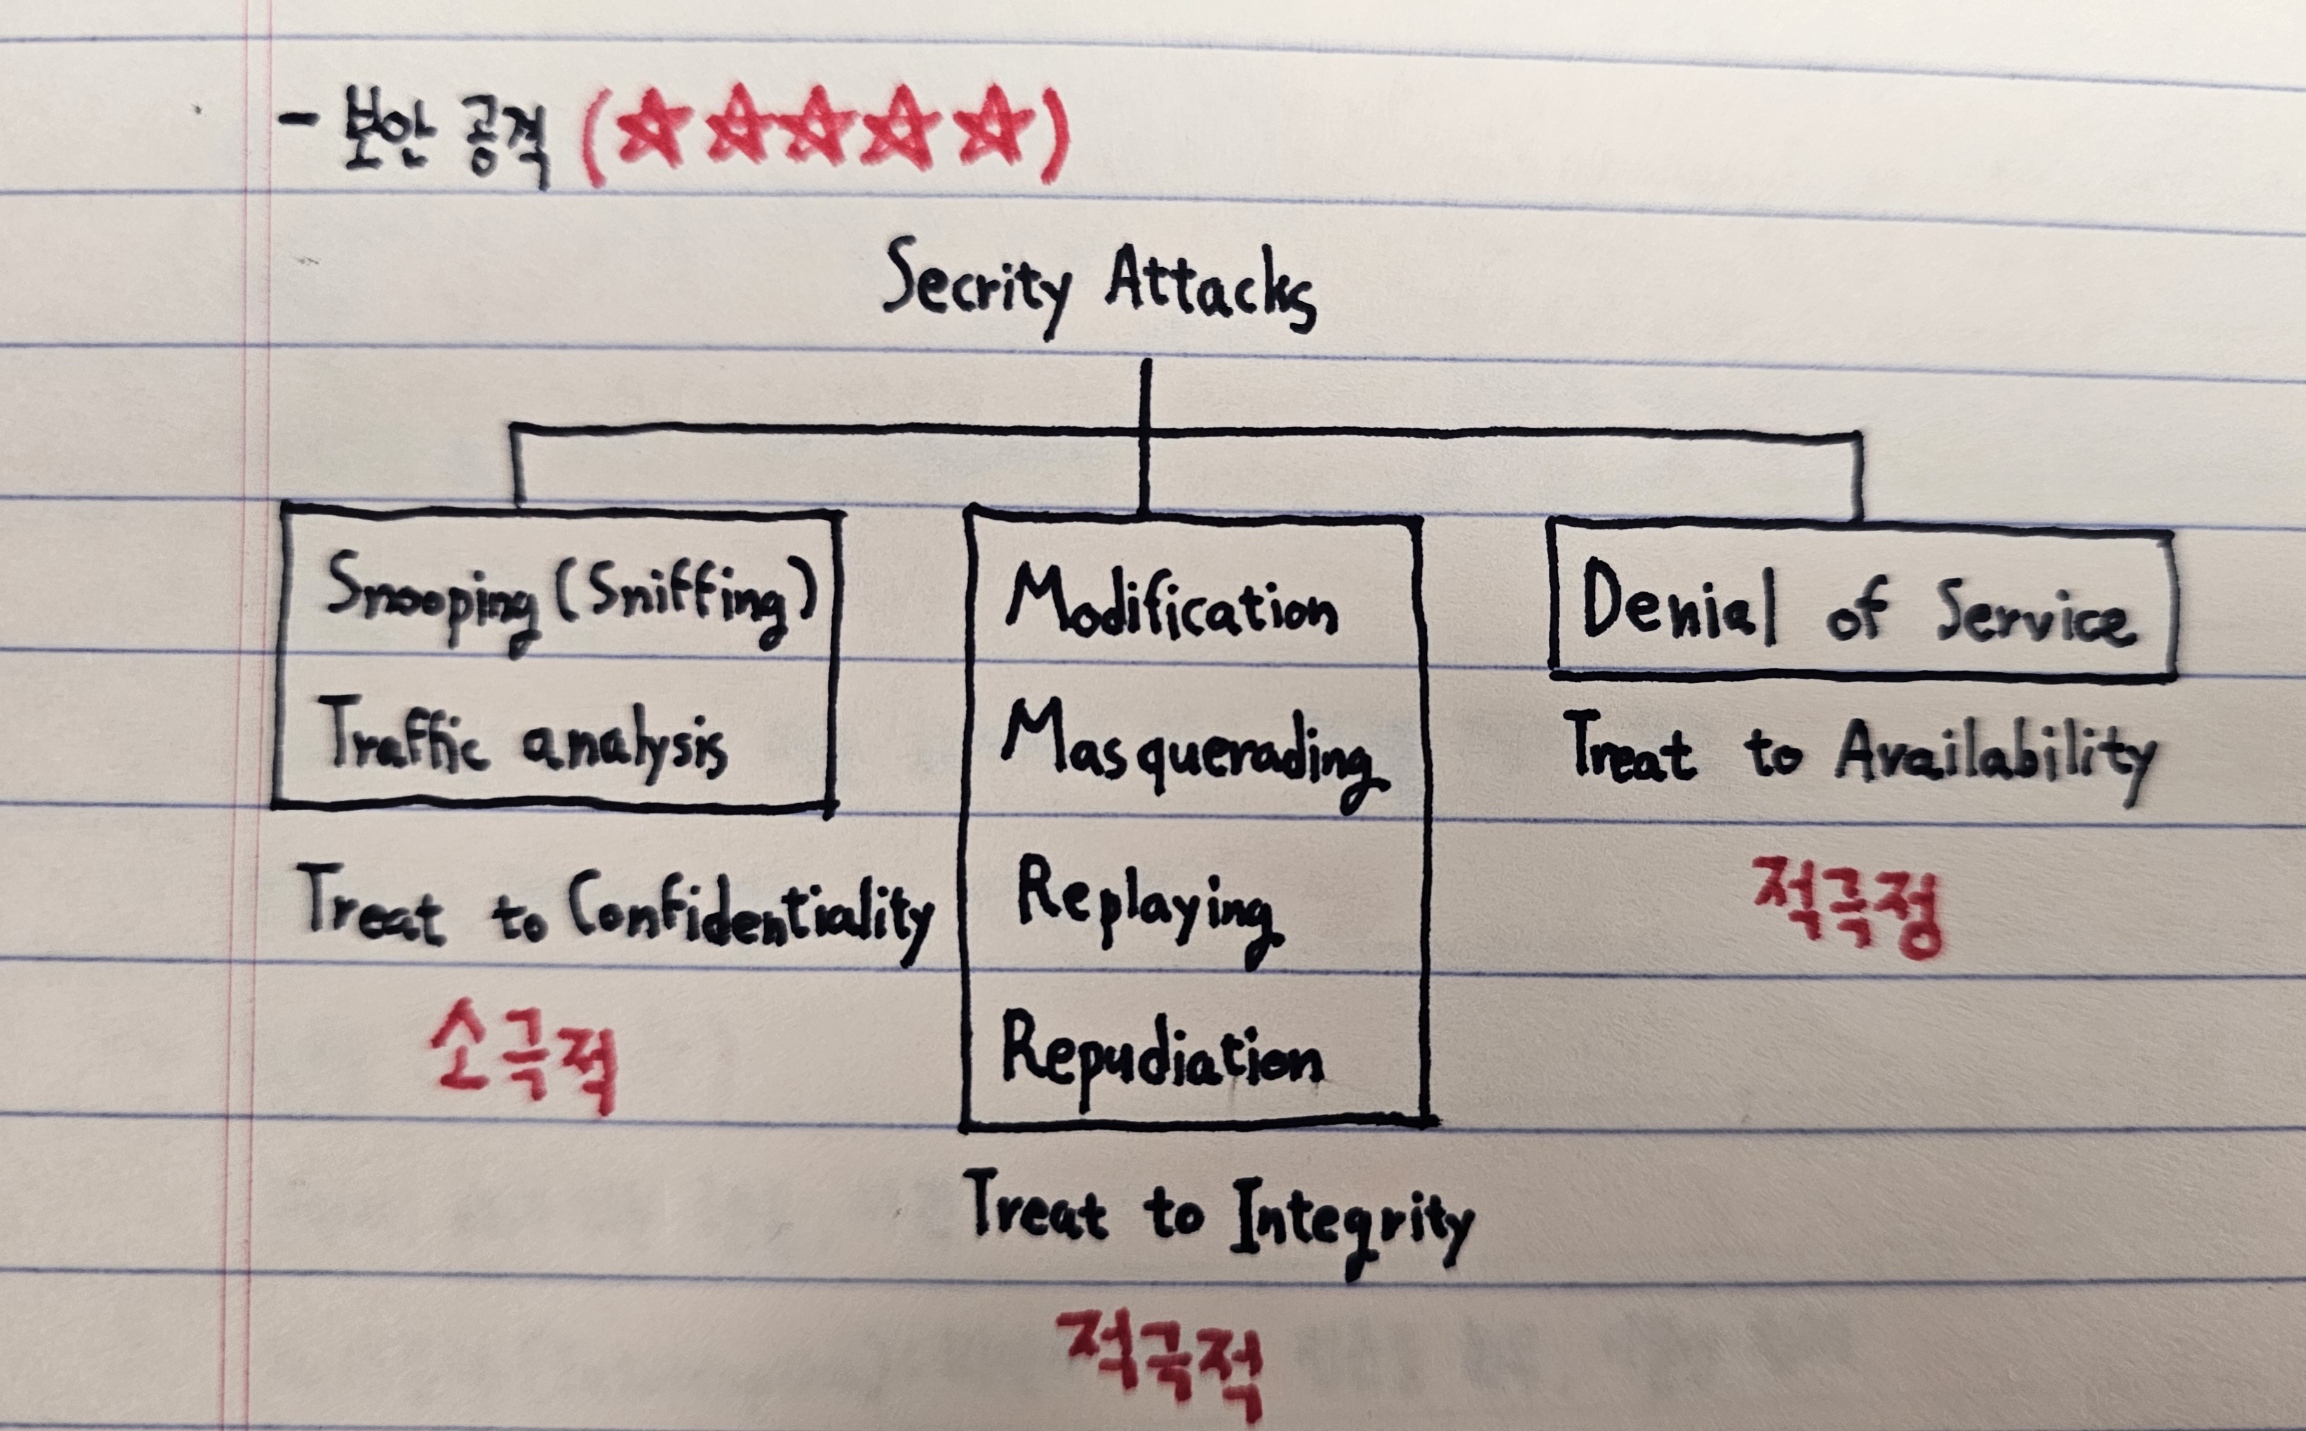 - 보안 공격 (☆☆☆☆☆)
Secrity Attacks
Snooping (Sniffing)
Traffic analysis
Treat to Confidentiality
소극적
Modification
Masquerading
Replaying
Repudiation
Treat to Integrity
적극적
Denial of Service
Treat to Availability
적극정